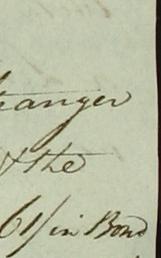 tranger
& the
61/ in Bond